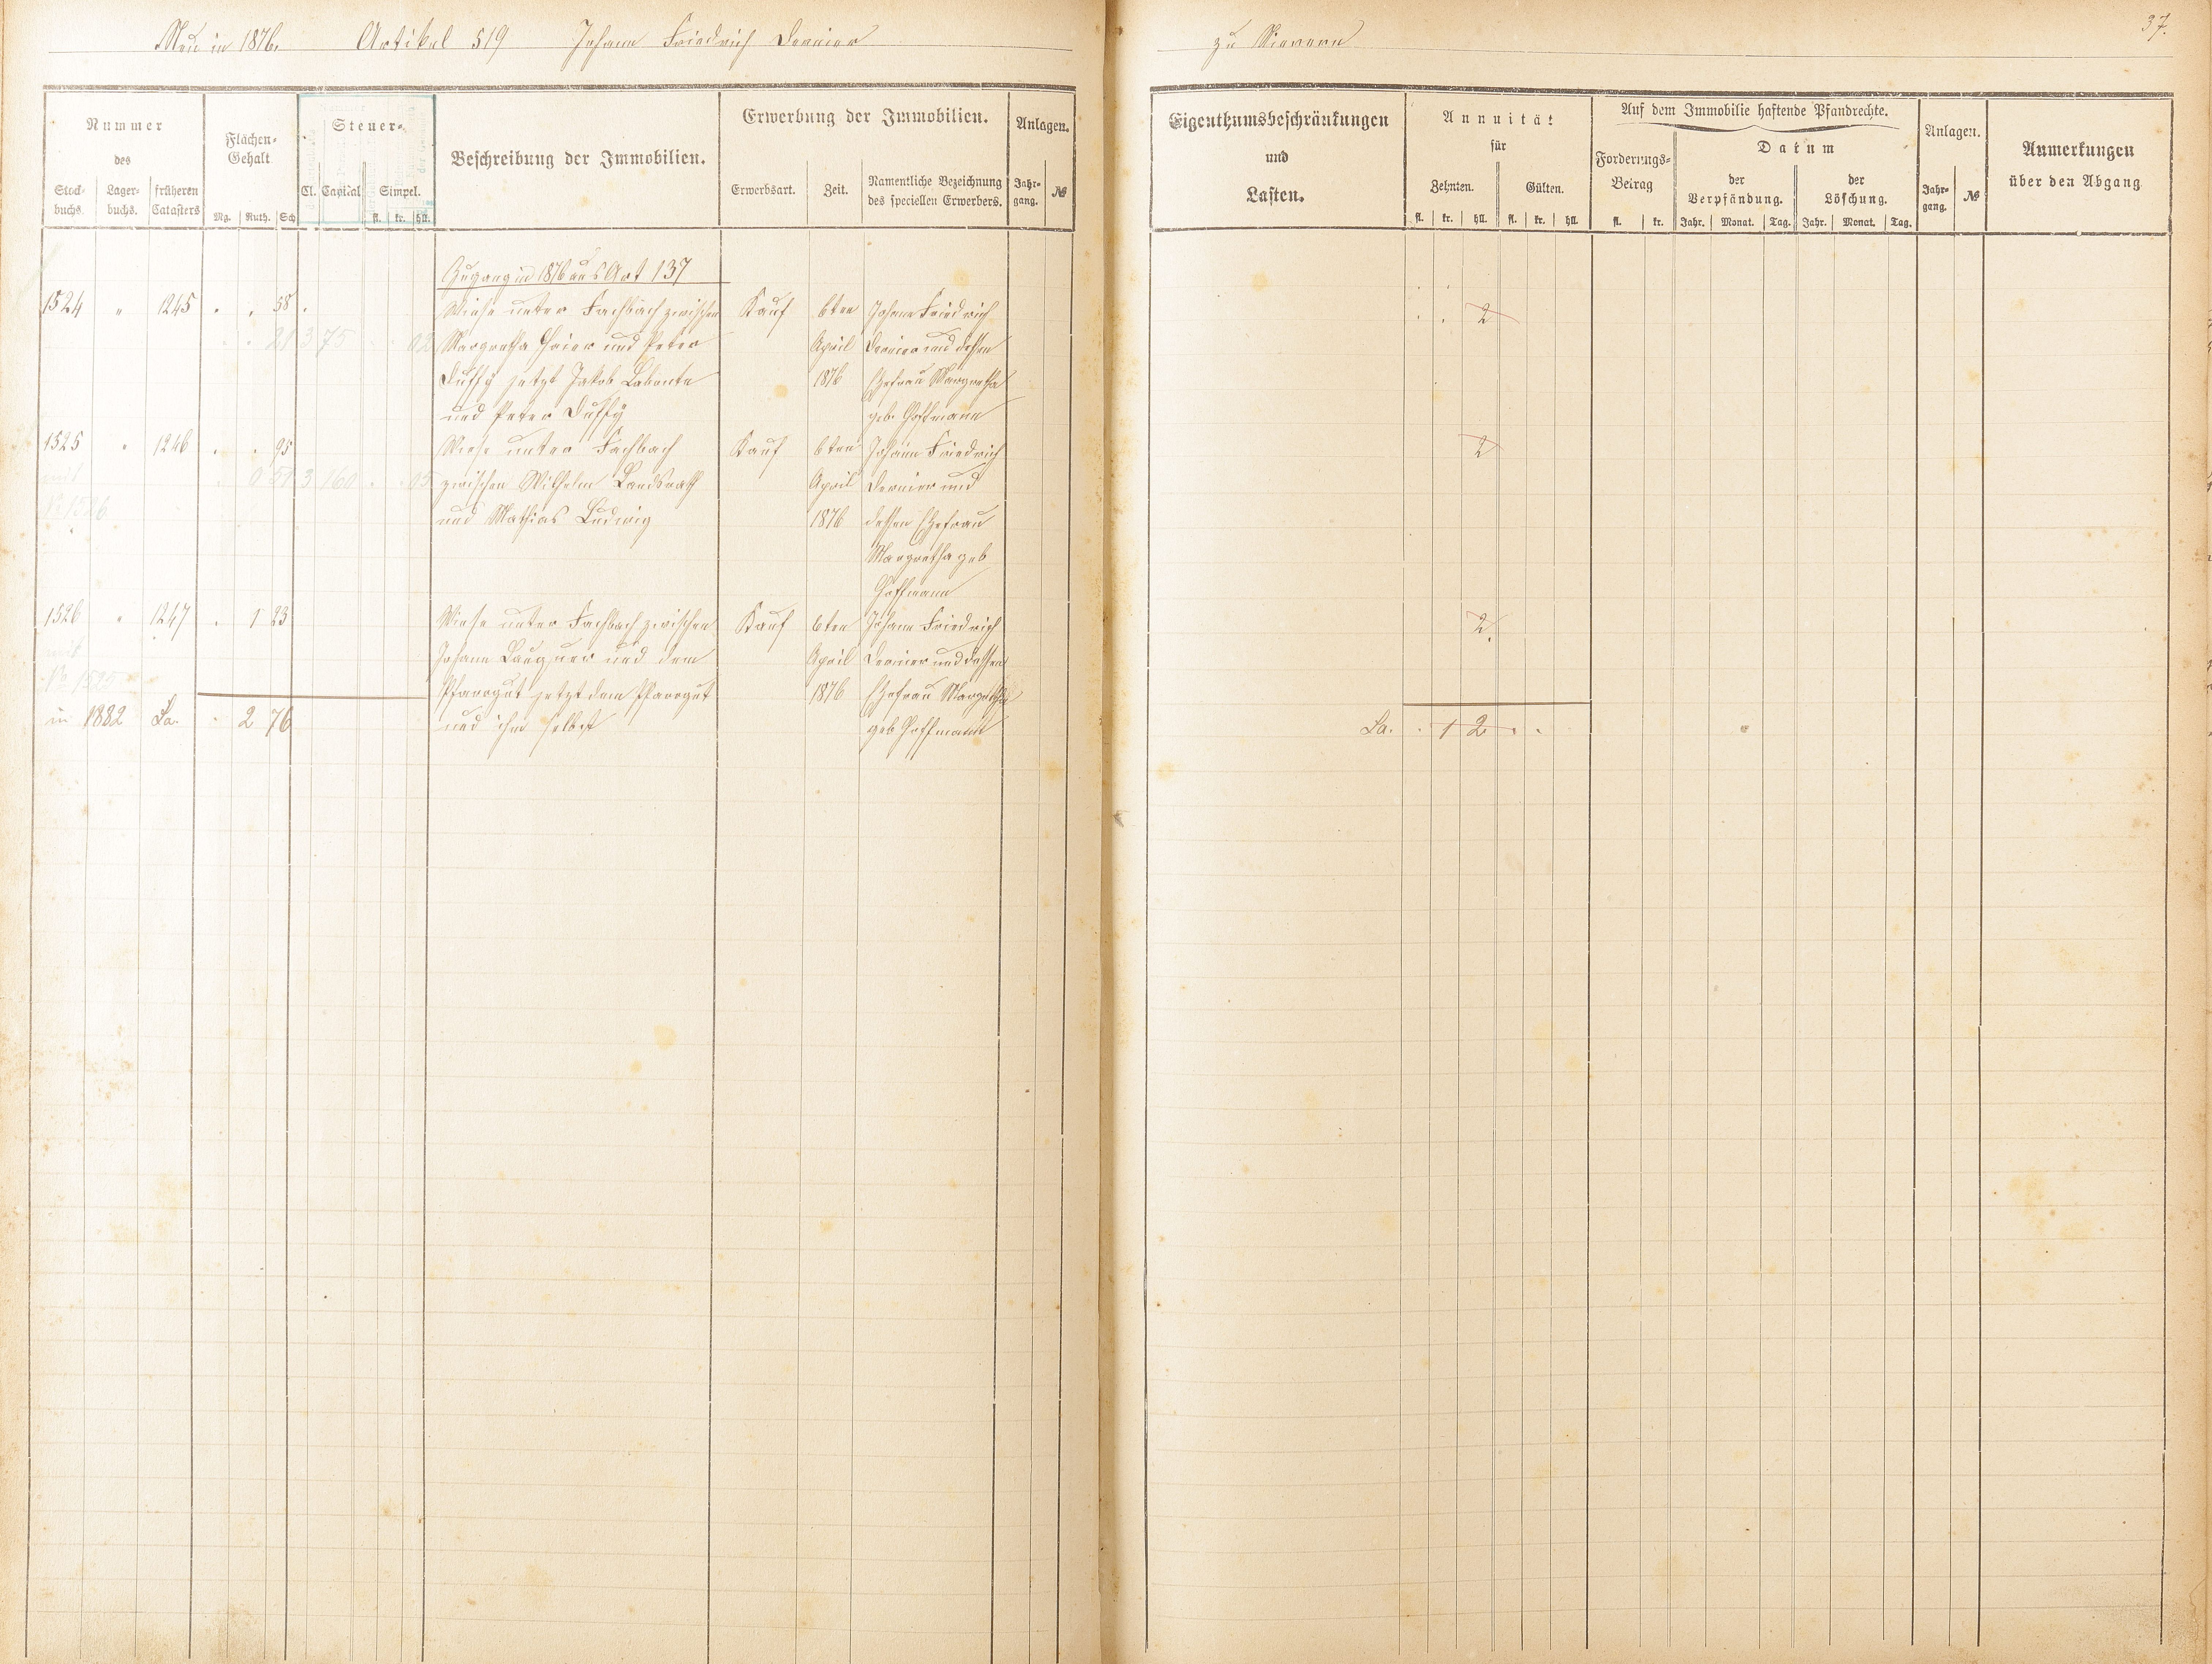 Neu in 1876. Artikel 519 Johann Friedrich Dernier
zu Nievern
37.
Nummer
des
Stock-
buchs.
Lager-
buchs.
früheren
Catasters
Flächen-
Gehalt
Mg. Ruth. Sch
Steuer-
Cl. Capital Simpel.
fl. kr. hll.
Beschreibung der Immobilien.
Erwerbung der Immobilien.
Erwerbsart. Zeit.
Namentliche Bezeichnung
des speciellen Erwerbers.
Anlagen.
Jahr-
gang.
№
Eigenthumsbeschränkungen
und
Lasten.
Annuität
für
Zehnten. Gülten.
fl. kr. hll. fl. kr. hll
Auf dem Immobilie haftende Pfandrechte.
Forderungs-
Betrag
fl. kr.
Datum
der
Verpfändung.
Jahr. Monat. Tag.
der
Löschung.
Jahr. Monat. Tag.
Anlagen.
Jahr-
gang.
№
Anmerkungen
über den Abgang
Zugang in 1876 aus Art 137
1524 " 1245 . . 58 Wiese unter Fachbach zwischen Kauf 6ten Johann Friedrich 2
21 3 75 02 Margretha und Peter April Dernier und dessen
Duffy jetzt Jakob Labonte 1876 Ehefrau Margretha
und Peter Duffy geb. Hoffmann
1525 " 1246 . . 95 Wiese unter Fachbach Kauf 6ten Johann Friedrich 2
mit 3 160 05 zwischen Wilhelm Landsrath April Dernier und
№ 1526 und Mathias Ludwig 1876 dessen Ehefrau
Margretha geb
Hoffmann
1526 " 1247 . 1 23 Wiese unter Fachbach zwischen Kauf 6ten Johann Friedrich 2
mit Johann und dem April Dernier und dessen
№ 1525 Pfarrgut jetzt dem Pfarrgut 1876 Ehefrau Margretha
in 1882 La. . 2 76 und ihm selbst geb Hoffmann La. . 1 2 . .